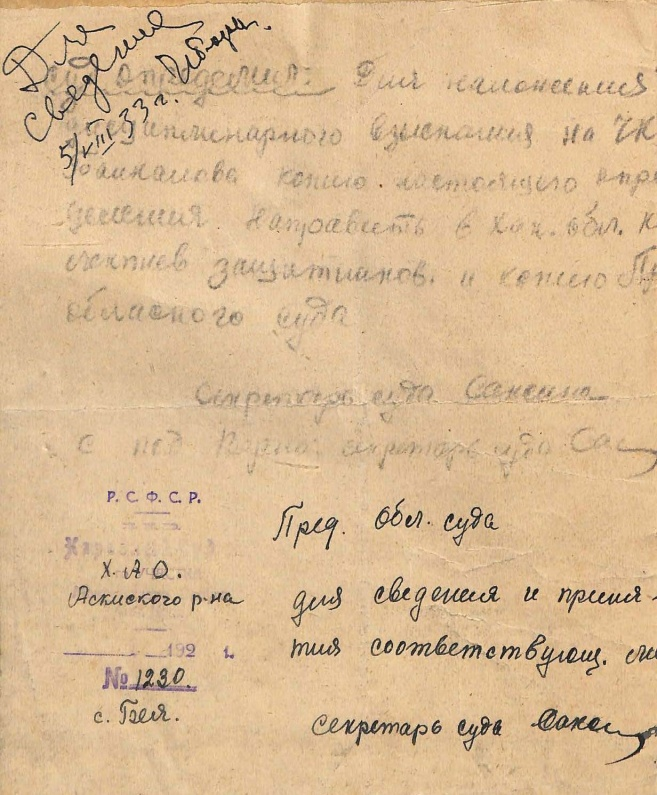 Для
сведения
5/XIII 33 г.
Суд определил: Для наложения
дисциплинарного взыскания на ЧК
копию настоящего опре
деления Направить в Хак. обл. К
защитников. и копию Пр
обласного суда
Секретарь суда Саксина
С под секретарь суда Сак
Р. С. Ф. С. Р.
Х. А О.
Аскиского р-на
192 г.
№ 1230.
с. Бея.
Пред. Обл. суда
для сведения и приня-
тия соответствующ.
секретарь суда Сакси